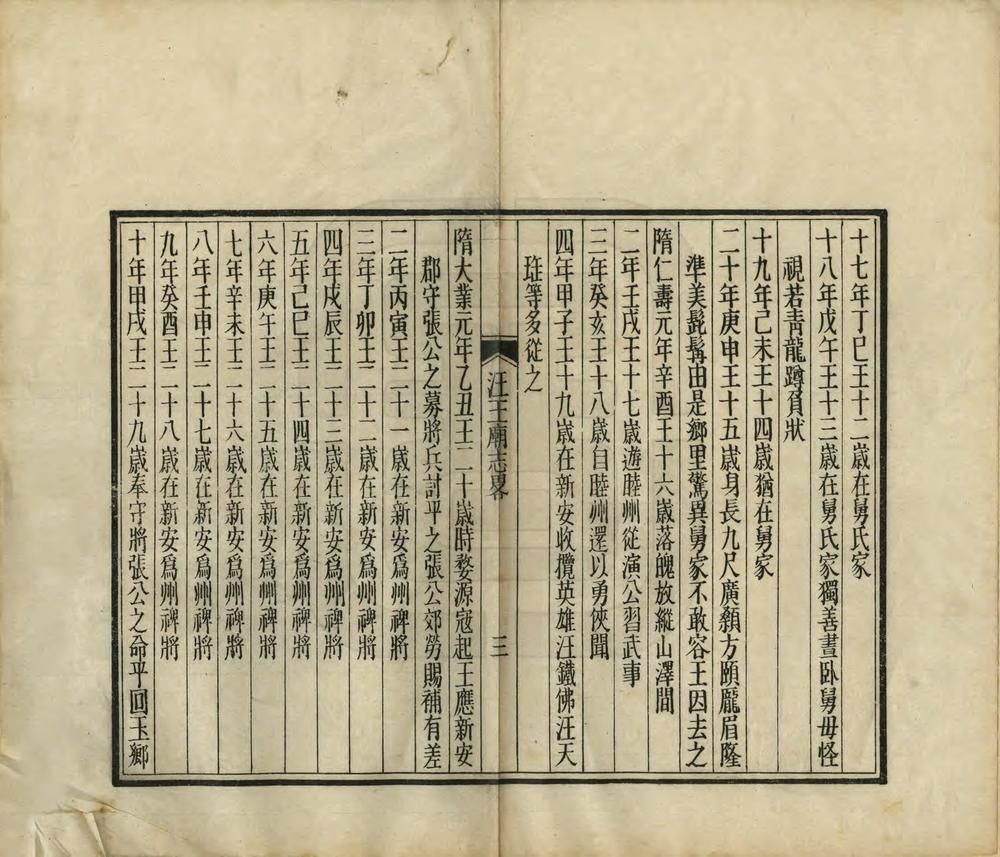 十七年丁巳王十二歲在舅氏家
十八年戊午王十三歲在舅氏家獨善晝臥舅毋怪
視若青龍蹲負狀
十九年己未王十四歲猶在舅家
二十年庚申王十五歲身長九尺廣顙方頤龎眉隆
準美髭髯由是鄉里驚異舅家不敢容王因去之
隋仁壽元年辛酉王十六歲落魄放縱山澤間
二年壬戌王十七歲遊睦州從演公習武事
三年癸亥王十八歲自睦州還以勇俠聞
四年甲子王十九歲在新安收攬英雄汪鐵佛汪天
珤等多從之
汪王廟志畧
三
隋大業元年乙丑王二十歲時婺源寇起王應新安
郡守張公之募將兵討平之張公郊勞賜補有差
二年丙寅王二十一歲在新安爲州裨將
三年丁卯王二十二歲在新安爲州裨將
四年戊辰王二十三歲在新安爲州裨將
五年己巳王二十四歲在新安爲州裨將
六年庚午王二十五歲在新安爲州裨將
七年辛未王二十六歲在新安爲州裨將
八年壬申王二十七歲在新安爲州裨將
九年癸酉王二十八歲在新安爲州裨將
十年甲戌王二十九歲奉守將張公之命平回玉鄉